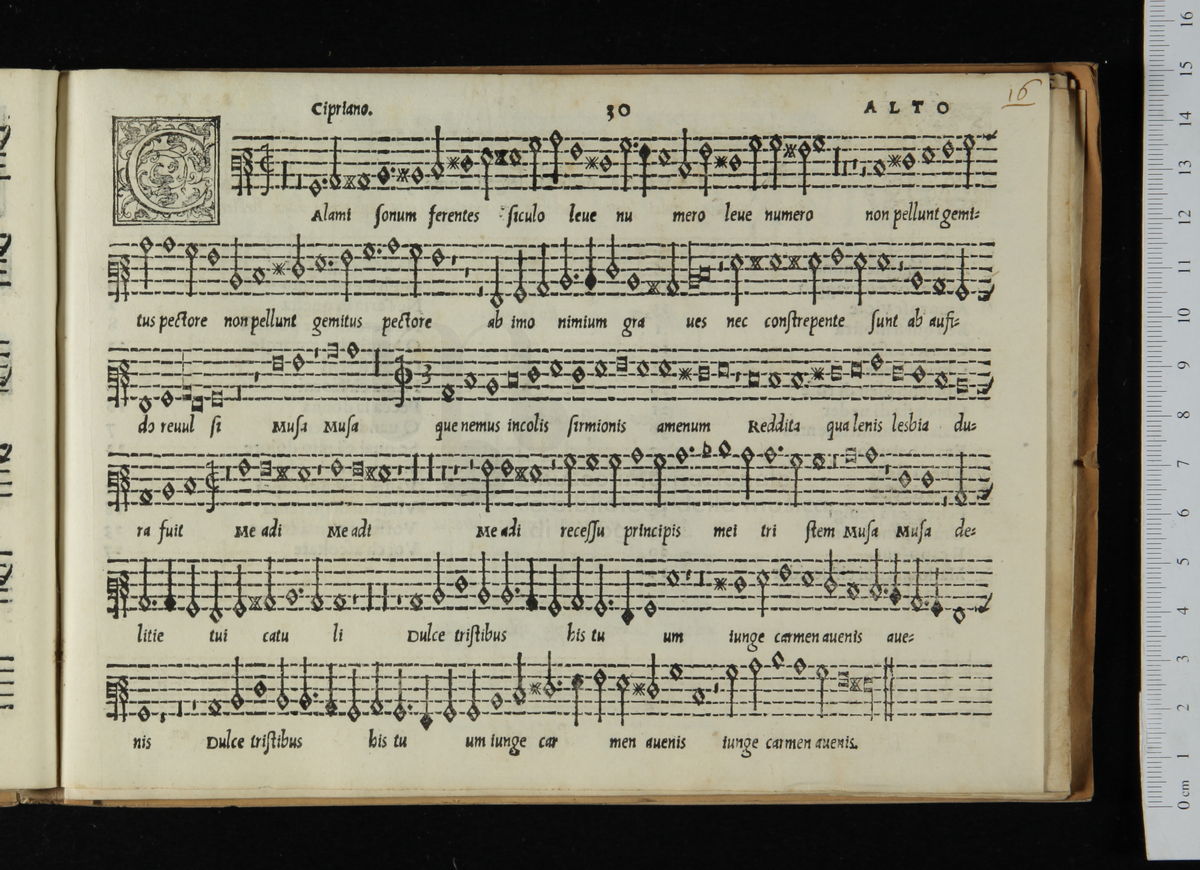 Cipriano. 30 ALTO 16
C Alami ſonum ferentes ſiculo leue nu mero leue numero non pellunt gemi=
tus pectore non pellunt gemitus pectore ab imo nimium gra ues nec conſtrepente ſunt ab aufi=
do reuul ſi Muſa Muſa que nemus incolis ſirmionis amenum Reddita qua lenis lesbia du=
ra fuit Me adi Me adi Me adi receſſu principis mei tri ſtem Muſa Muſa de=
litie tui catu li Dulce triſtibus his tu um iunge carmen auenis aue=
nis Dulce triſtibus his tu um iunge car men auenis iunge carmen auenis.
0 cm 1 2 3 4 5 6 7 8 9 10 11 12 13 14 15 16